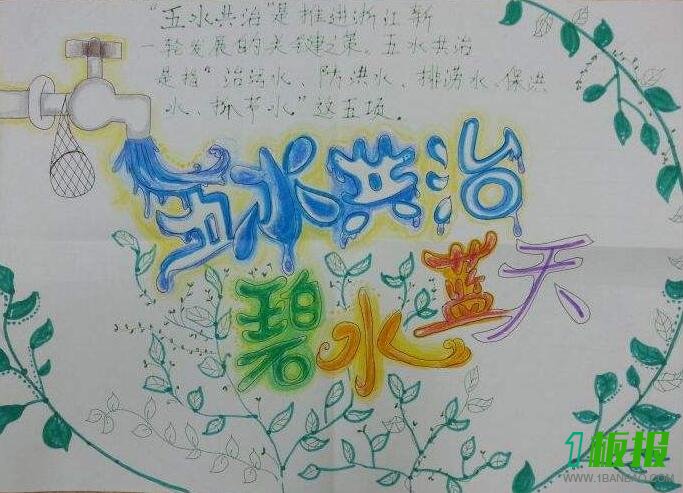 "五水共治"是推进浙江新
一轮发展的关键之策。五水共治
是指"治污水、防洪水、排涝水、保洪
水、抓节水"这五项。
五水共治
碧水蓝天
1板报
WWW.1BANBAO.COM